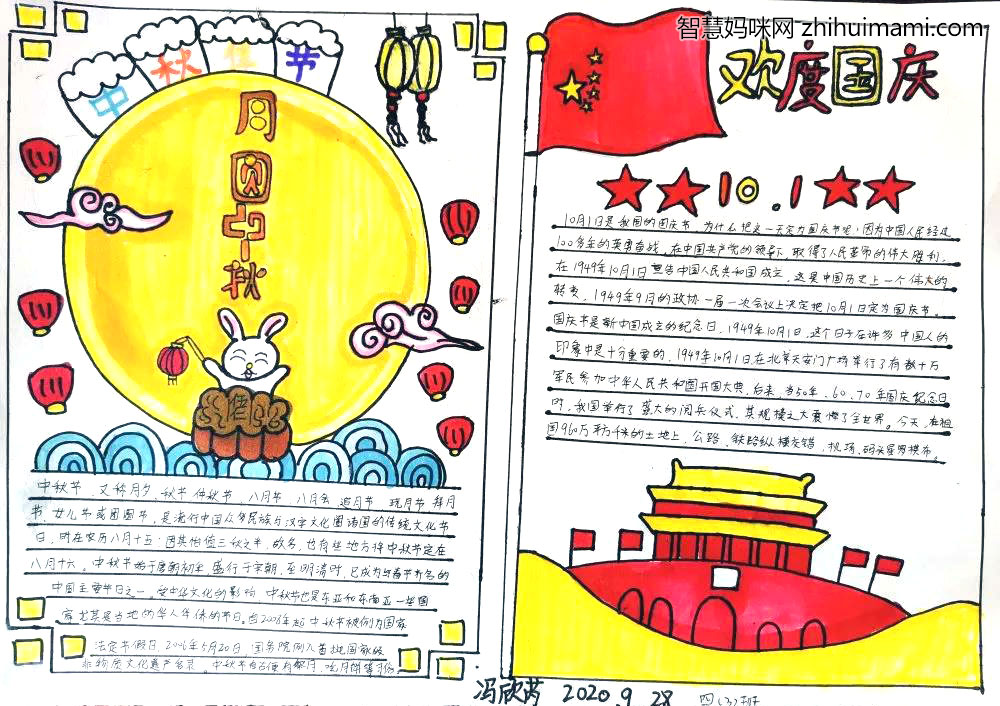 智慧妈咪网 zhihuimami.com
中秋佳节
月圆中秋
中秋节 又称月夕、秋节 仲秋节、八月节 八月会 追月节 玩月节 拜月
节、女儿节或团圆节，是流行中国众多民族与汉字文化圈诸国的传统文化节
日，时在农历八月十五；因其恰值三秋之半，故名，也有些地方将中秋节定在
八月十六。中秋节始于唐朝初年，盛行于宋朝，至明清时，已成为与春节齐名的
中国主要节日之一。受中华文化的影响 中秋节也是东亚和东南亚一些国
家尤其是当地的华人华侨的节日。自2008年起中秋节被列为国家
法定节假日 2006年5月20日，国务院列入首批国家级
非物质文化遗产名录。中秋节自古便有祭月、
欢度国庆
10.1
10月1日是我国的国庆节，为什么把这一天定为国庆节呢：因为中国人民经过
100多年的英勇奋战，在中国共产党的领导下，取得了人民革命的伟大胜利，
在1949年10月1日宣告中国人民共和国成立，这是中国历史上一个伟大的
转变，1949年9月的政协一届一次会议上决定把10月1日定为国庆节。
国庆节是新中国成立的纪念日，1949年10月1日，这个日子在许多中国人的
印象中是十分重要的，1949年10月1日，在北京天安门广场举行了有数十万
军民参加中华人民共和国开国大典，后来，当50年、60、70年国庆纪念日
时，我国举行了盛大的阅兵仪式，其规模之大震惊了全世界。今天，在祖
国960万平方千米的土地上，公路、铁路纵横交错，机场、码头星罗棋布。
冯欣芮 2020.9.28 四(3)班